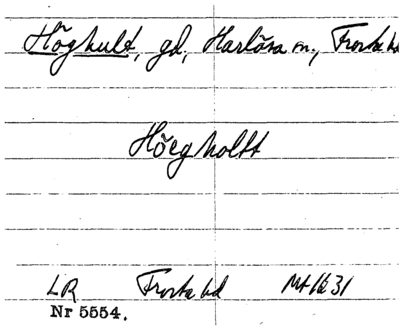 Höghult, gd, Harlösa sn., Frosta hd
Höegholtt
LR Frosta hd
Nr 5554.